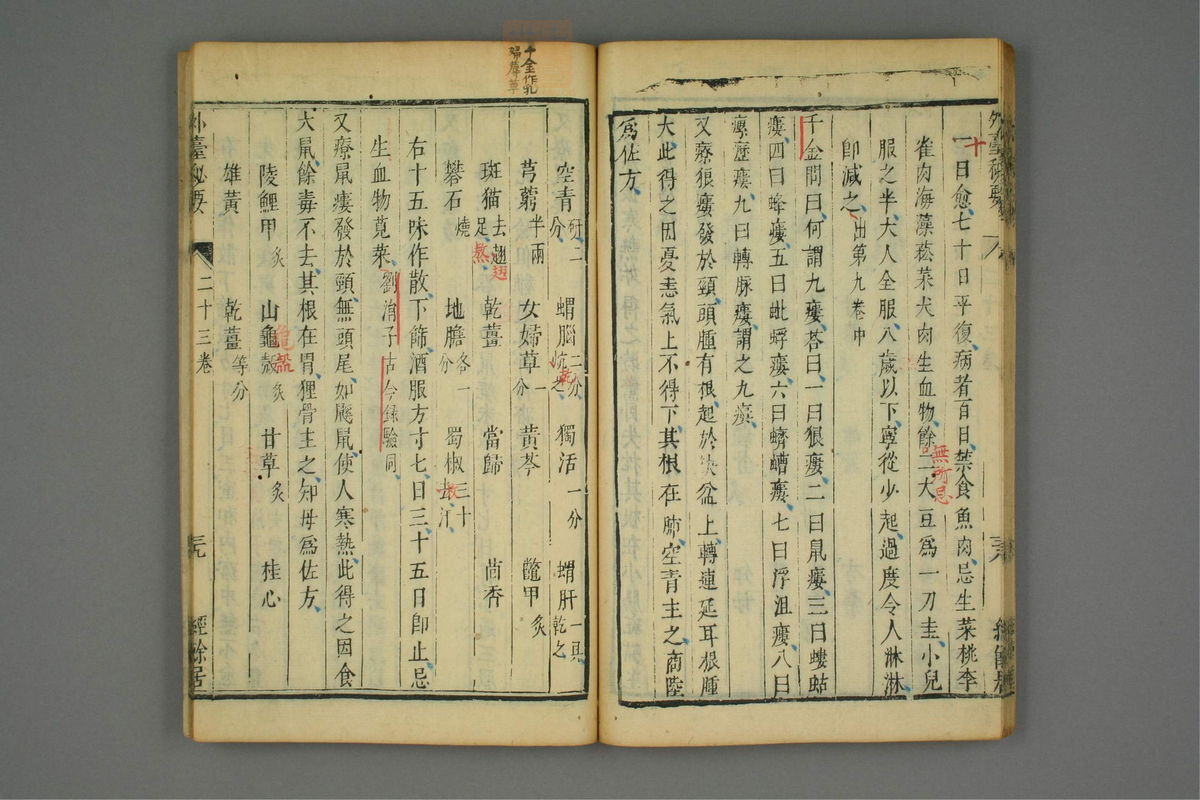 外臺秘要
一日愈七十日平復病者百日禁食魚肉忌生菜桃李
十
雀肉海藻菘菜犬肉生血物餘二大豆爲一刀圭小兒
無所忌
服之半大人全服八歲以下寧從少起過度令人淋淋
卽減之出第九卷中
千金問曰何謂九瘻荅曰一曰狼瘻二曰鼠瘻三曰螻蛄
瘻四曰蜂瘻五曰蚍蜉瘻六曰蠐螬瘻七曰浮沮瘻八曰
瘰癧瘻九曰轉脉瘻謂之九瘻
又療狼瘻發於頸頭腫有根起於缺盆上轉連延耳根腫
大此得之因憂恚氣上不得下其根在肺空青主之商陸
爲佐方
千金作乳
婦蓐草
空青研二分 蝟腦二分炕之 獨活一分 蝟肝一具乾之
乾
芎藭半兩 女婦草一分 黃芩 鼈甲炙
斑猫去翅足熬 乾薑 當歸 茴香
翅
礬石燒 地膽各一分 蜀椒三十去汗
右十五味作散下篩酒服方寸七日三十五日卽止忌
生血物莧菜劉涓子古今録驗同
又療鼠瘻發於頸無頭尾如鼷鼠使人寒熱此得之因食
大鼠餘毒不去其根在胃狸骨主之知母爲佐方
陵鯉甲炙 山龜殼炙 甘草炙 桂心
龜
雄黃 乾薑等分
外臺秘要 二十三卷 三九 經餘居